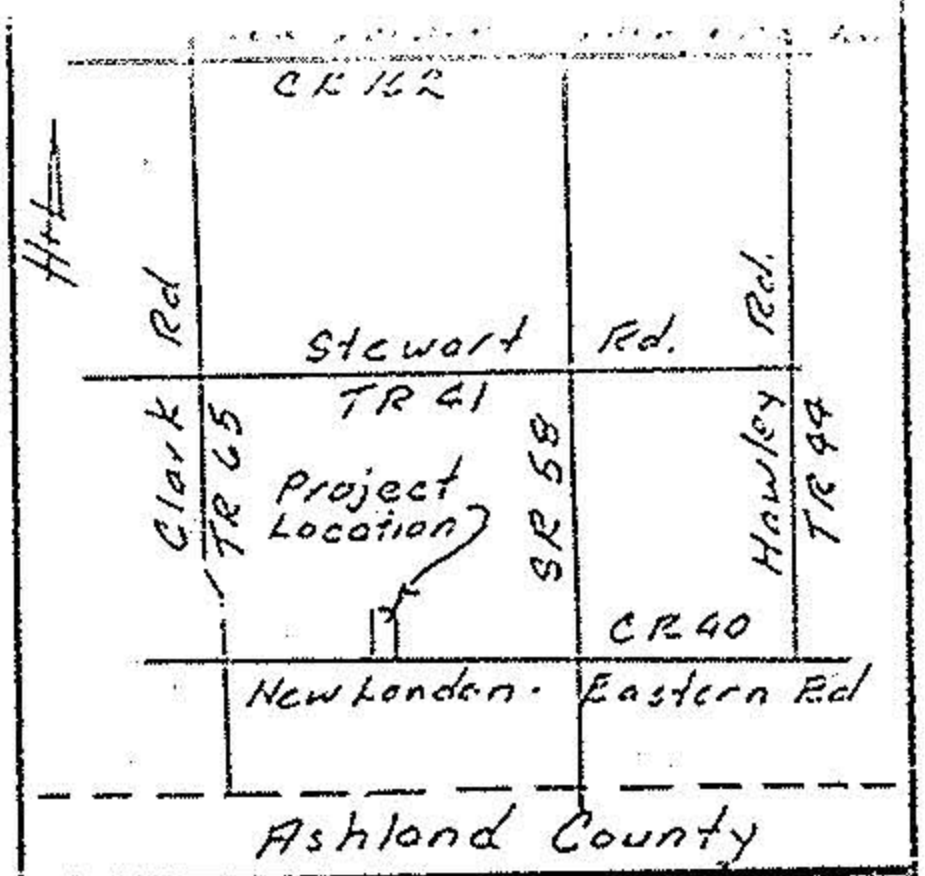 Clark Rd
Stewart Rd.
TR 41
TR 65
Project
Location
SR 58
Hawley Rd.
TR 44
CR 40
New London - Eastern Rd
Ashland County